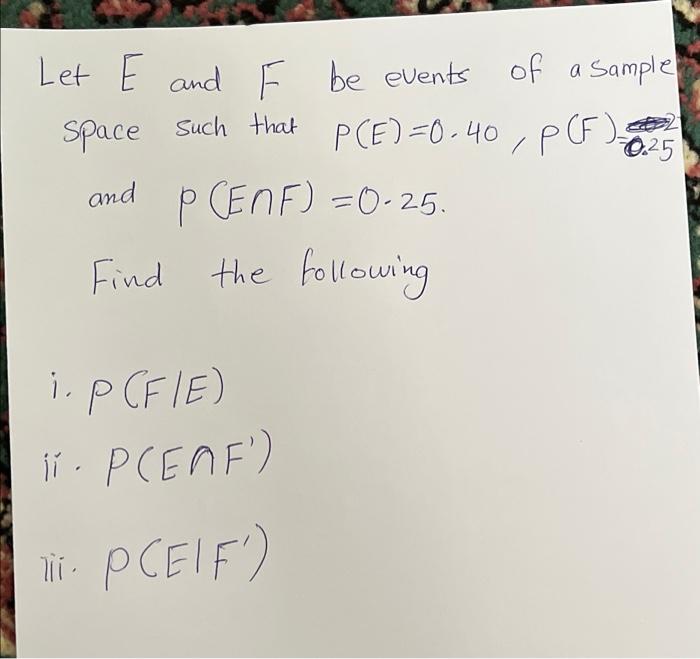 Let E and F be events of a sample
space such that P(E)=0.40, P(F)=0.25
and P(E∩F)=0.25.
Find the following
i. P(F/E)
ii. P(E∩F')
iii. P(E|F')